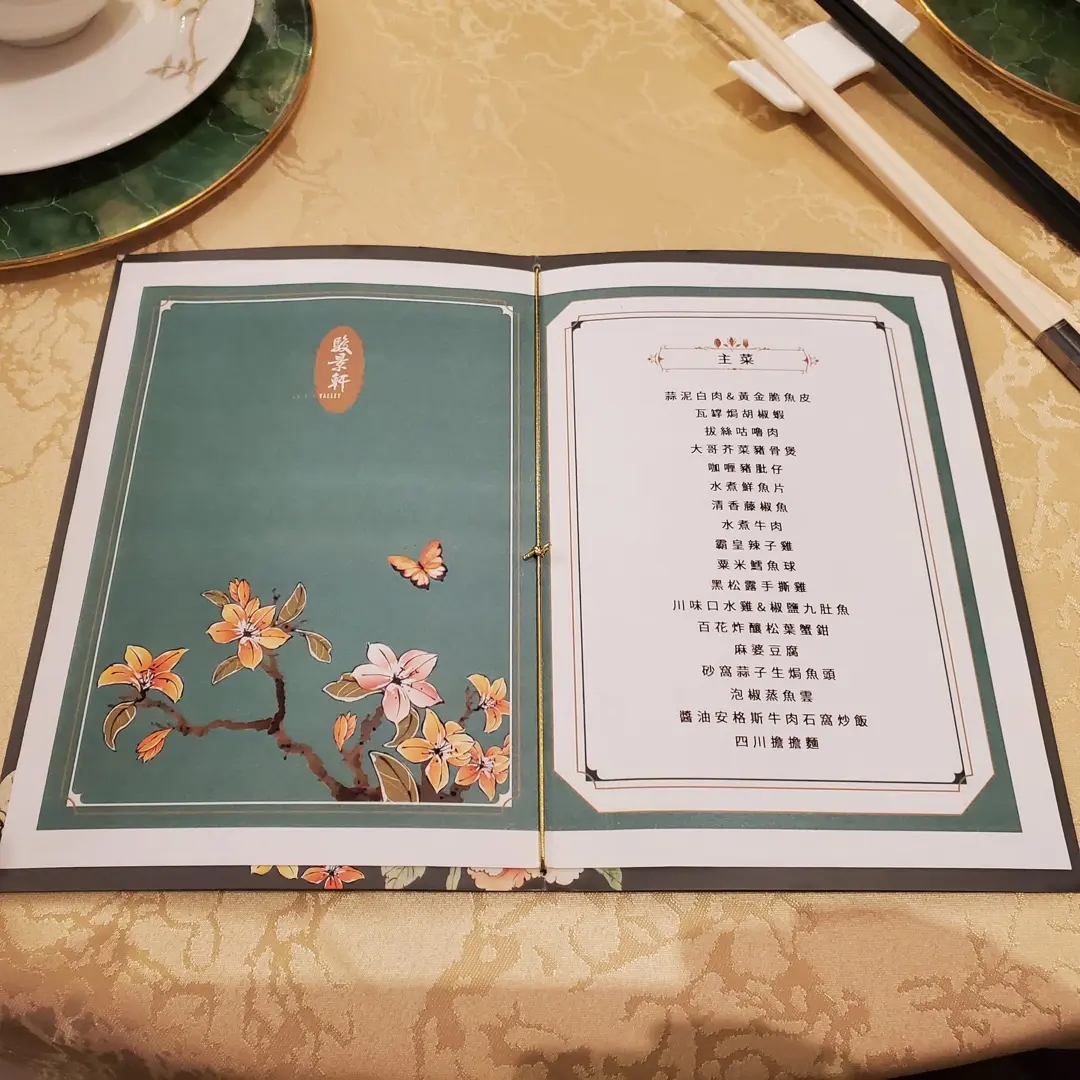 駿景軒
VALLEY
主菜
蒜泥白肉&黃金脆魚皮
瓦罉焗胡椒蝦
拔絲咕嚕肉
大哥芥菜豬骨煲
咖喱豬肚仔
水煮鮮魚片
清香藤椒魚
水煮牛肉
霸皇辣子雞
粟米鱈魚球
黑松露手撕雞
川味口水雞&椒鹽九肚魚
百花炸釀松葉蟹鉗
麻婆豆腐
砂窩蒜子生焗魚頭
泡椒蒸魚雲
醬油安格斯牛肉石窩炒飯
四川擔擔麵